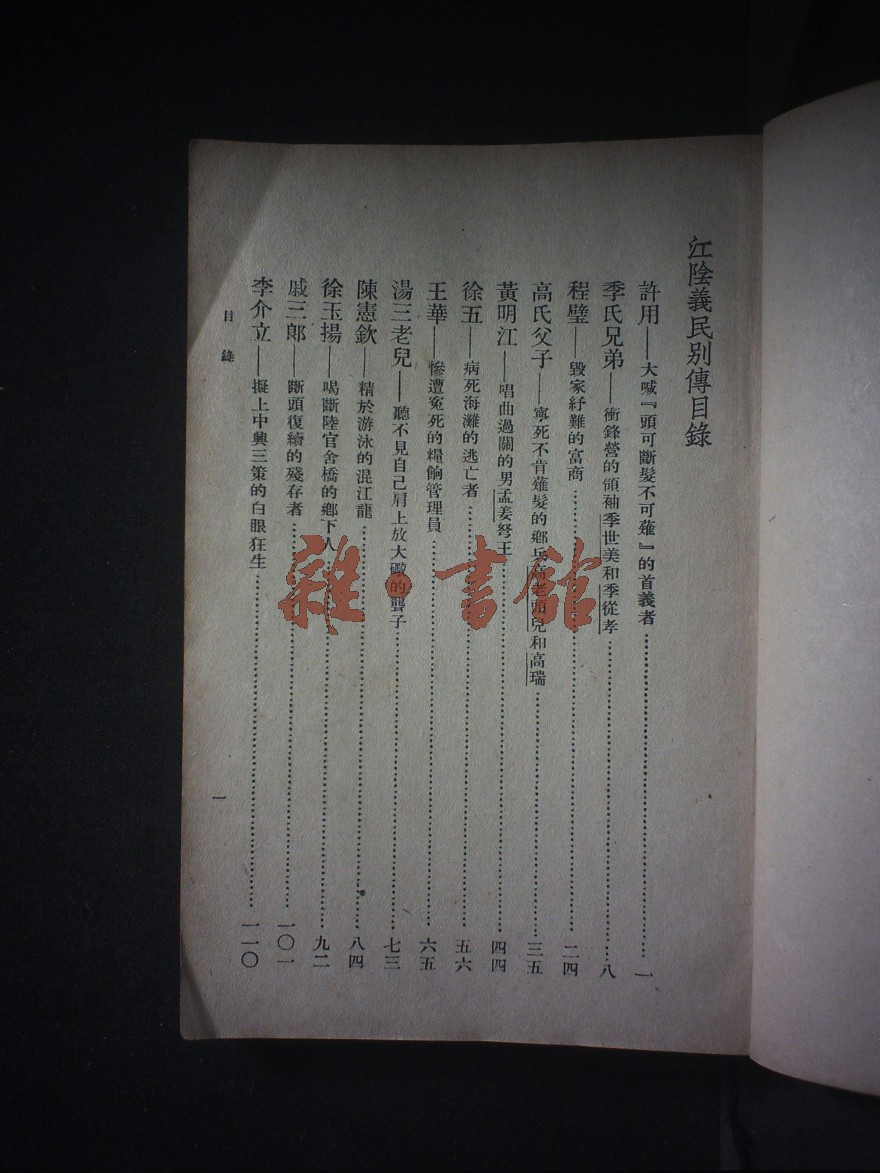 江陰義民別傳目錄
許用——大喊『頭可斷髮不可薙』的首義者……一
季氏兄弟——衝鋒營的領袖季世美和季從孝……八
程璧——毀家紓難的富商……二四
高氏父子——寧死不肯薙髮的鄉兵高老頭兒和高瑞……三五
黃明江——唱曲過關的男孟姜弩王……四四
徐五——病死海灘的逃亡者……五六
王華——慘遭冤死的糧餉管理員……六五
湯三老兒——聽不見自己肩上放大礮的聾子……七三
陳憲欽——精於游泳的混江龍……八四
徐玉揚——喝斷陸官舍橋的鄉下人……九二
戚三郎——斷頭復續的殘存者……一〇一
李介立——擬上中興三策的白眼狂生……一一〇
目錄
一
雜·書館